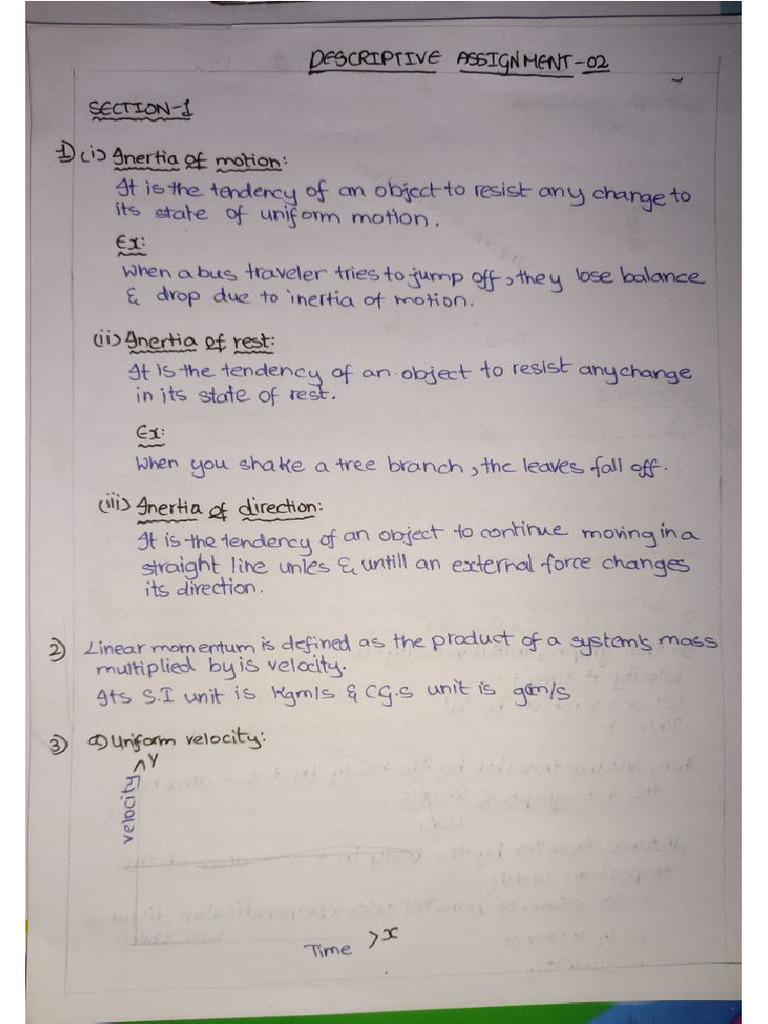 DESCRIPTIVE ASSIGNMENT-02
SECTION-1
1) (i) Inertia of motion:
It is the tendency of an object to resist any change to
its state of uniform motion.
Ex:
When a bus traveler tries to jump off, they lose balance
& drop due to inertia of motion.
(ii) Inertia of rest:
It is the tendency of an object to resist any change
in its state of rest.
Ex:
When you shake a tree branch, the leaves fall off.
(iii) Inertia of direction:
It is the tendency of an object to continue moving in a
straight line unles & untill an external force changes
its direction.
2) Linear momentum is defined as the product of a system's mass
multiplied by is velocity.
Its S.I unit is Kgm/s & C.G.S unit is gcm/s
3) a) Uniform velocity:
Y
velocity
Time > x